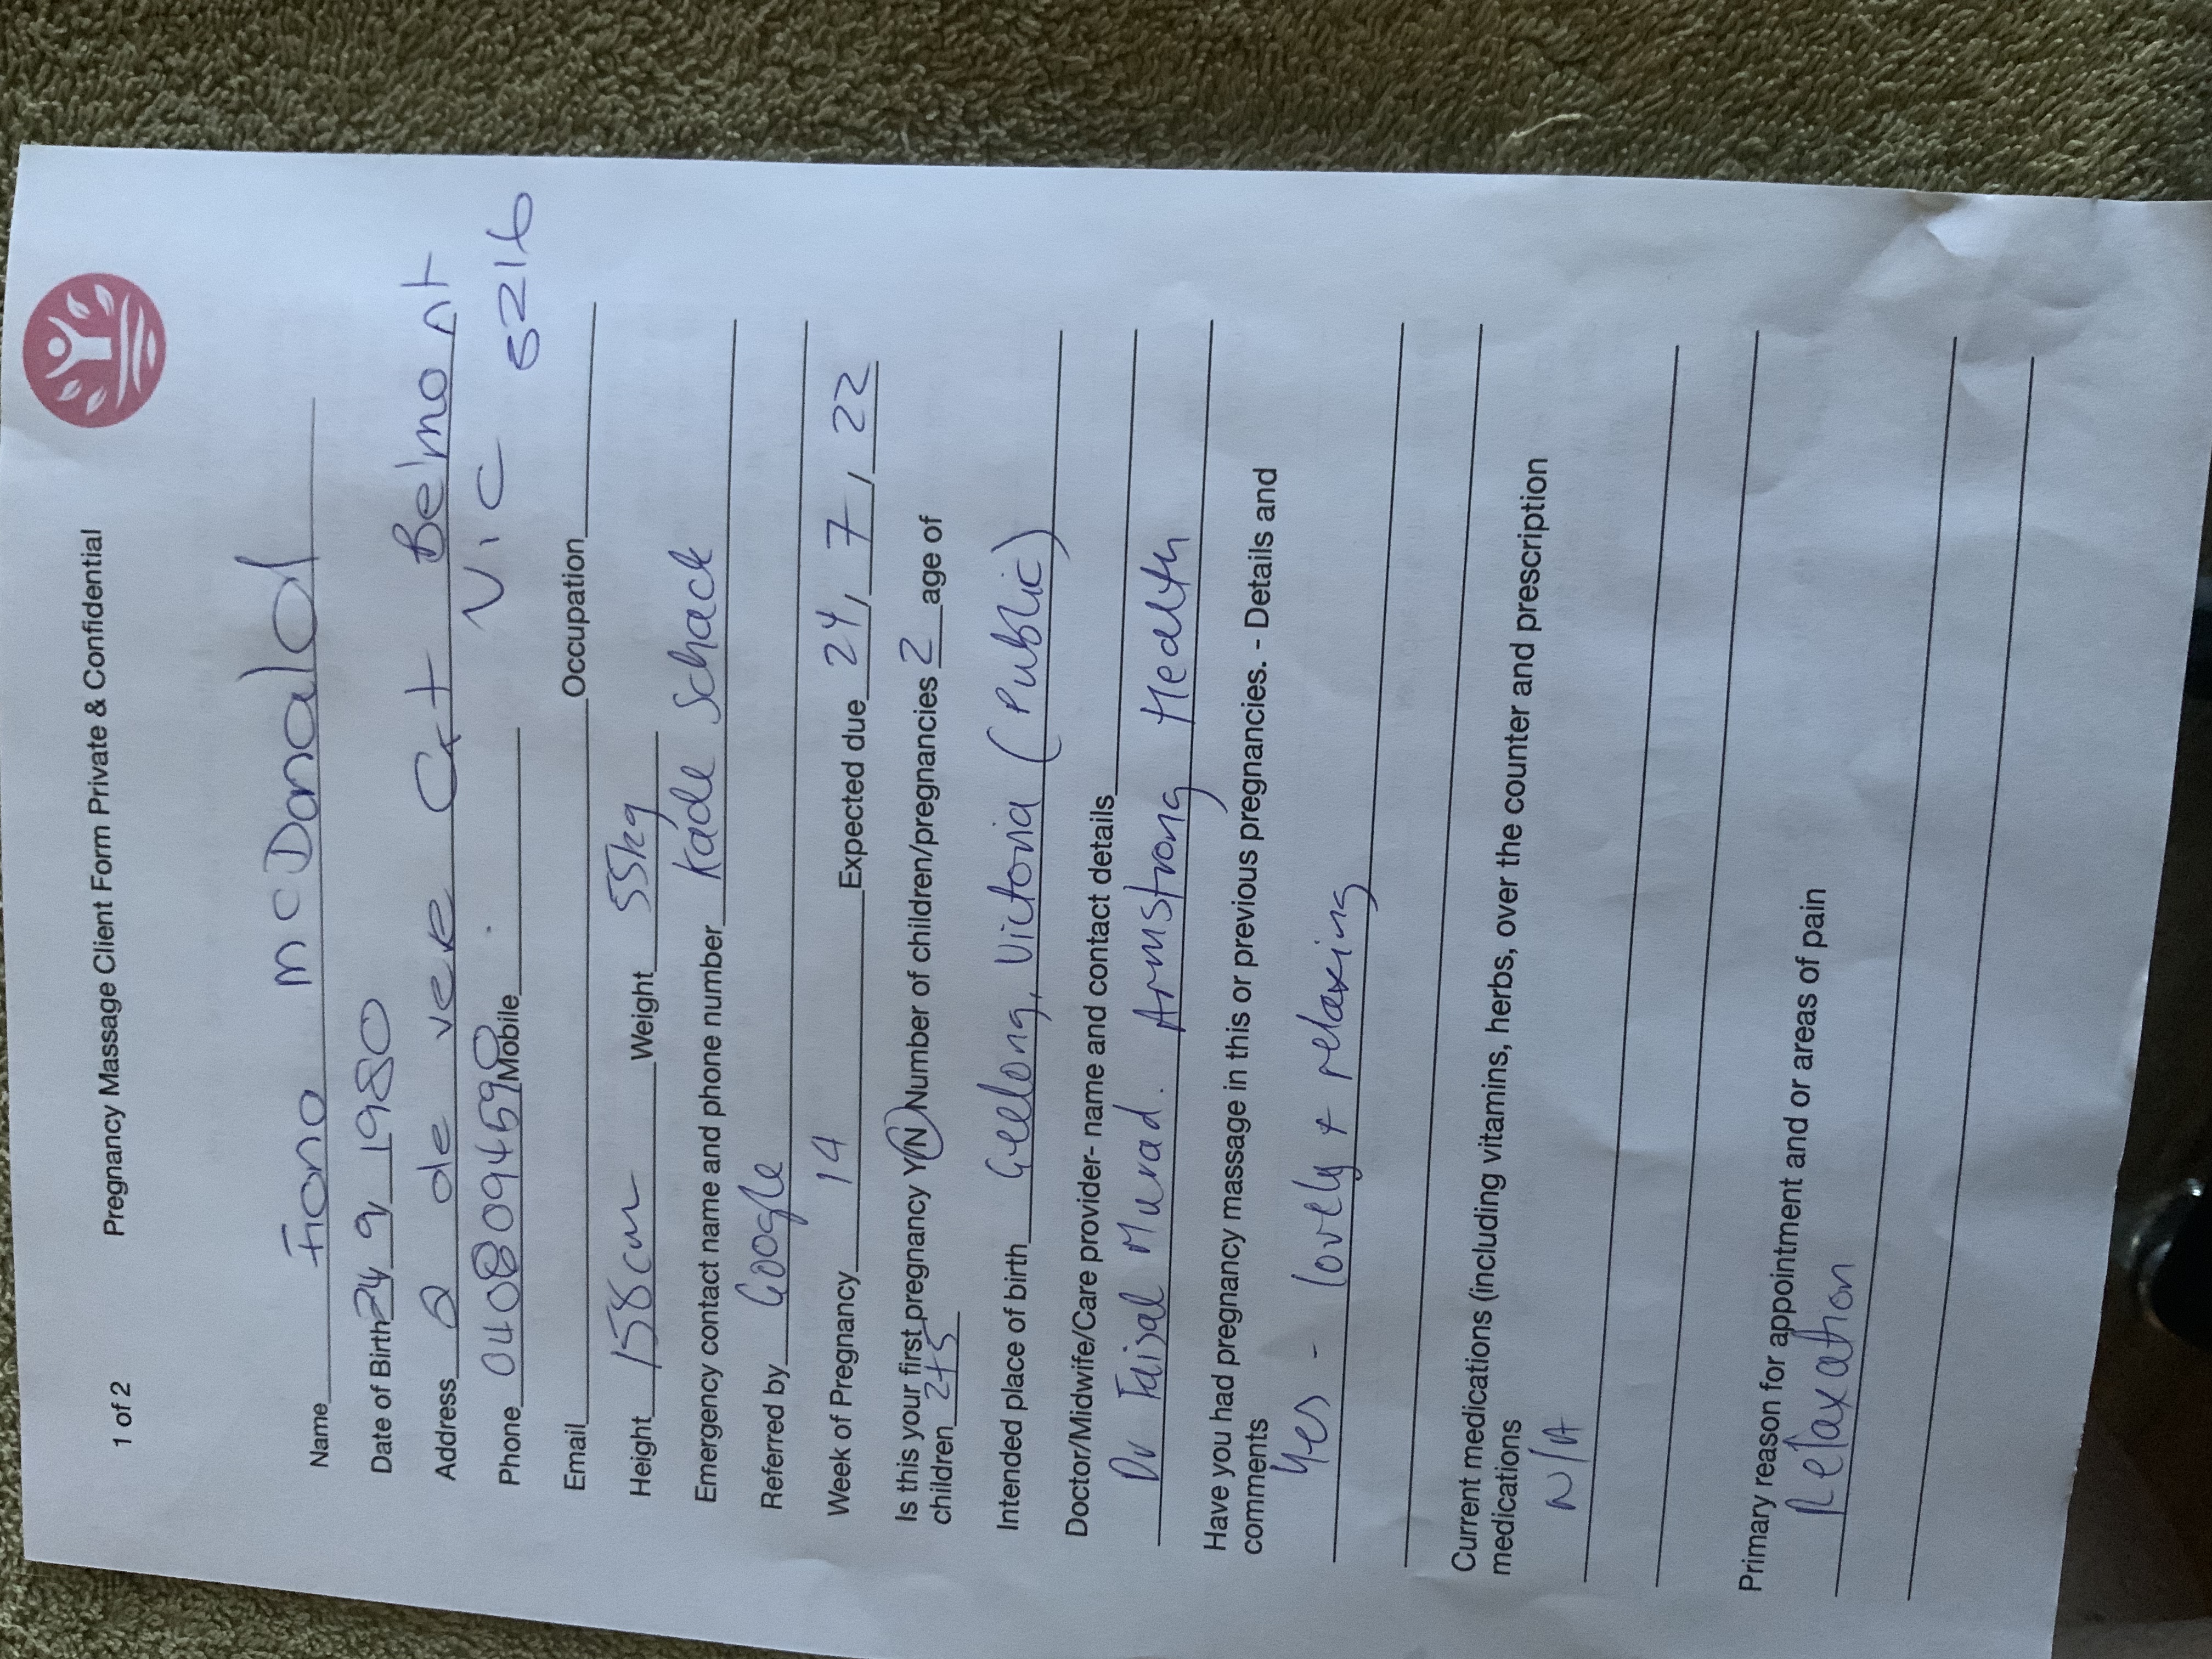 1 of 2 Pregnancy Massage Client Form Private & Confidential
Name Fiona McDonald
Date of Birth 24 9 1980
Address 2 de vere Crt Belmont
Vic 5216
Phone 0408094590 Mobile
Email Occupation
Height 158cm Weight 55kg
Emergency contact name and phone number Kade Schack
Referred by Google
Week of Pregnancy 14 Expected due 24/7/22
Is this your first pregnancy Y/N Number of children/pregnancies 2 age of
children 2+5
Intended place of birth Geelong, Victoria (Public)
Doctor/Midwife/Care provider- name and contact details
Dr Faisal Murad. Armstrong Health
Have you had pregnancy massage in this or previous pregnancies. - Details and
comments
Yes - lovely + relaxing
Current medications (including vitamins, herbs, over the counter and prescription
medications
N/A
Primary reason for appointment and or areas of pain
Relaxation